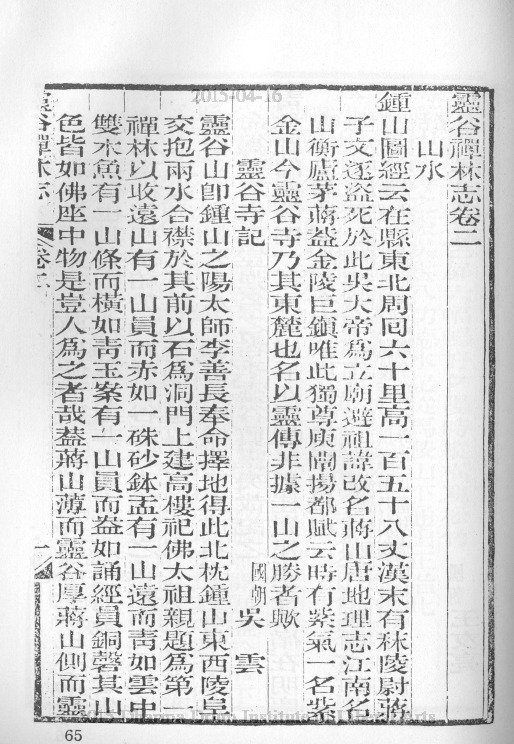 靈谷禪林志卷二
山水
鍾山圖經云在縣東北周囘六十里高一百五十八丈漢末有秣陵尉蔣
子文逐盜死於此吳大帝爲立廟避祖諱改名蔣山唐地理志江南名
山衡廬茅蔣蓋金陵巨鎭唯此獨尊庾闡揚都賦云時有紫氣一名紫
金山今靈谷寺乃其東麓也名以靈傳非據一山之勝者歟
靈谷寺記
國朝吳雲
靈谷山卽鍾山之陽太師李善長奉命擇地得此北枕鍾山東西陵皇
交抱兩水合襟於其前以石爲洞門上建高樓祀佛太祖親題爲第一
禪林以收遠山有一山員而赤如一硃砂鉢盂有一山遠而靑如雲中
雙木魚有一山條而橫如靑玉案有一山員而益如誦經員銅磬其山
色皆如佛座中物是豈人爲之者哉葢蔣山薄而靈谷厚蔣山側而靈
靈谷禪林志
卷二
一
65
2015-04-16